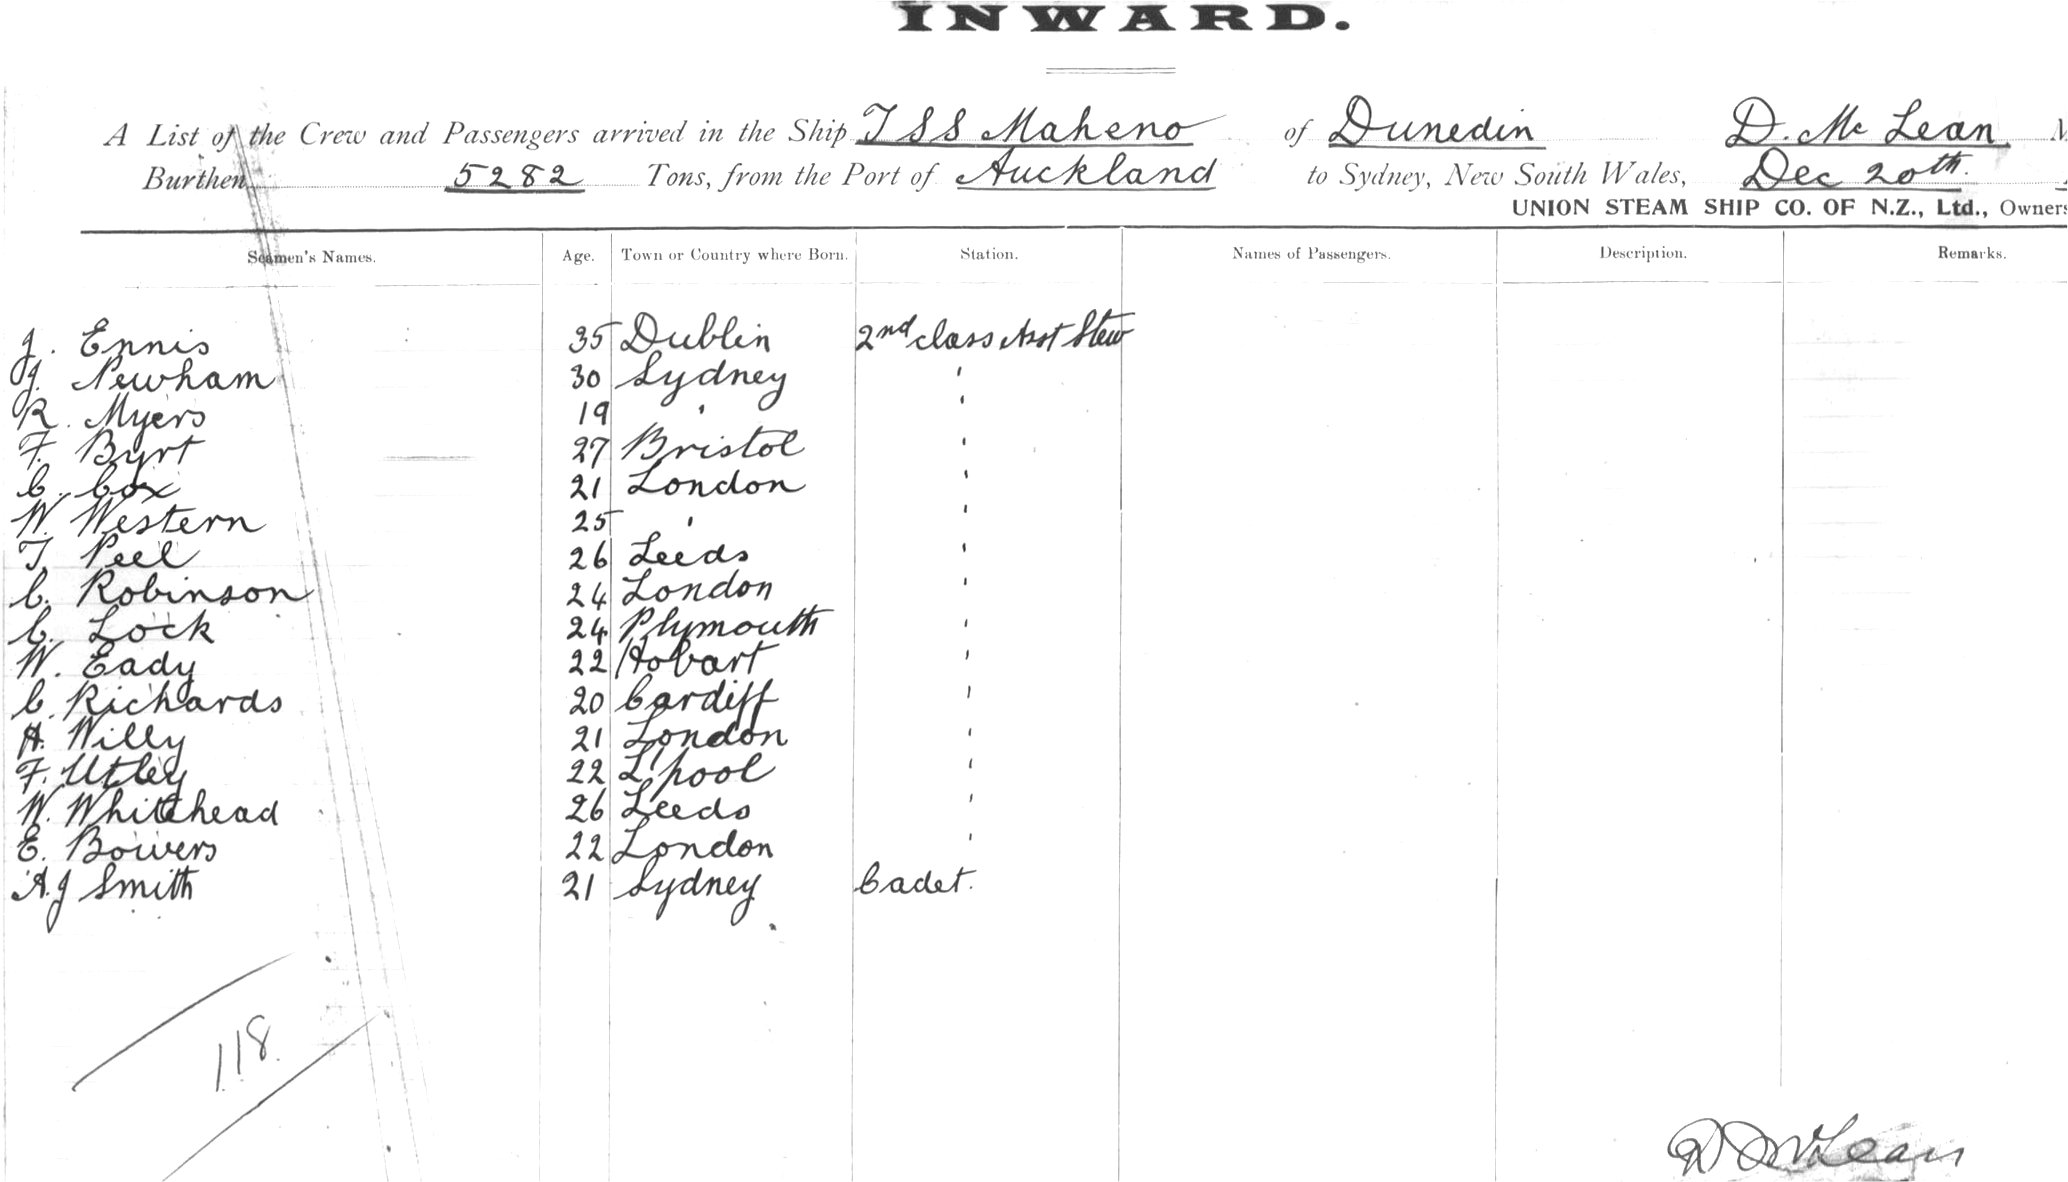 INWARD.
A List of the Crew and Passengers arrived in the Ship TSS Maheno of Dunedin D. Mc Lean
Burthen 5282 Tons, from the Port of Auckland to Sydney, New South Wales, Dec 20th.
UNION STEAM SHIP CO. OF N.Z., Ltd., Owners
Seamen's Names. Age. Town or Country where Born. Station. Names of Passengers. Description. Remarks.
J. Ennis 35 Dublin 2nd class Asst Stew
J. Newham 30 Sydney '
R. Myers 19 ' '
F. Byrt 27 Bristol '
C. Cox 21 London '
W. Western 25 ' '
T. Peel 26 Leeds '
C. Robinson 24 London '
C. Lock 24 Plymouth '
W. Eady 22 Hobart '
C. Richards 20 Cardiff '
H. Willy 21 London '
F. Utley 22 L'pool '
W. Whitehead 26 Leeds '
E. Bowers 22 London '
A.J Smith 21 Sydney Cadet.
118.
D McLean